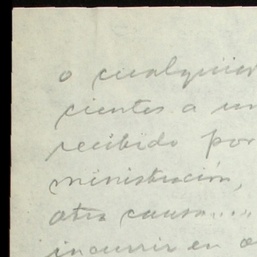 o cualquier
cientes a un
recibido por
ministración,
otra causa....
incurrir en